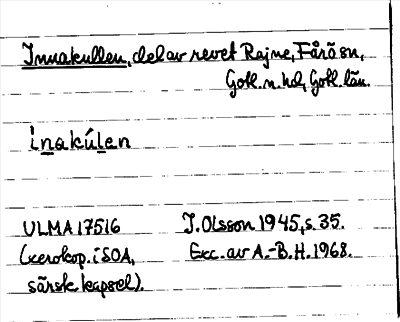 Innakullen, del av revet Rajne, Fårö sn,
Gotl. n. hd, Gotl. län.
inakúlen
ULMA 17516 J. Olsson 1945, s. 35.
(xerokop. i SOA, Exc. av A.-B. H. 1968.
särsk. kapsel).